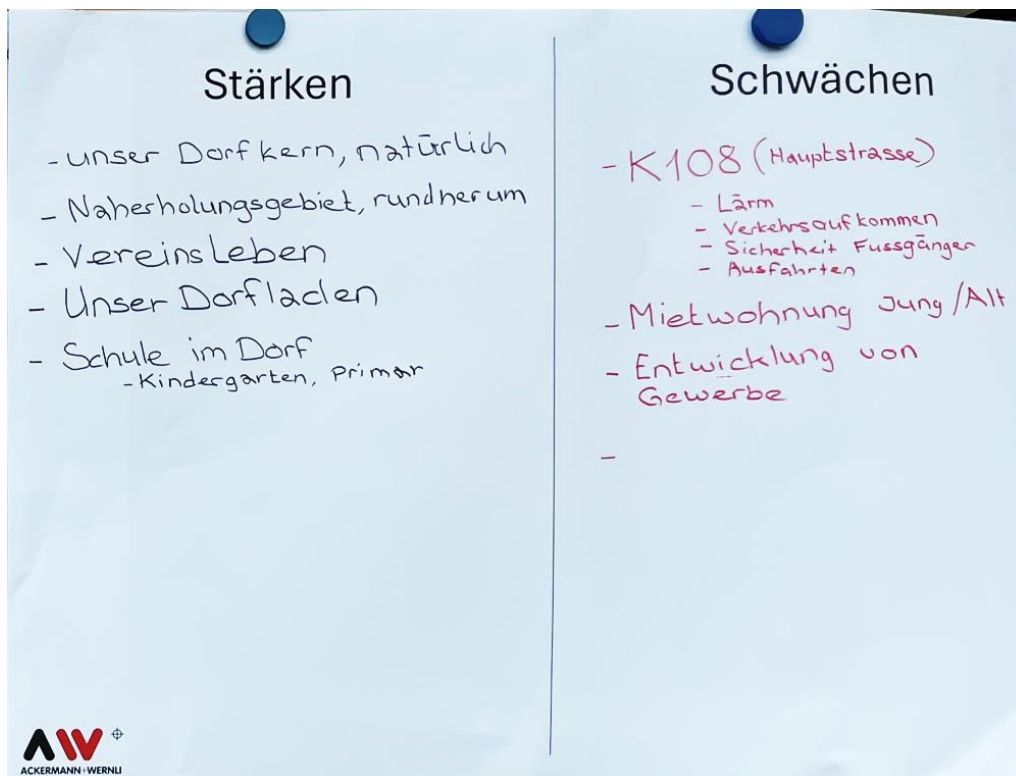 Stärken
- unser Dorfkern, natürlich
- Naherholungsgebiet, rundherum
- Vereinsleben
- Unser Dorfladen
- Schule im Dorf
- Kindergarten, Primar
Schwächen
- K108 (Hauptstrasse)
- Lärm
- Verkehrsaufkommen
- Sicherheit Fussgänger
- Ausfahrten
- Mietwohnung Jung/Alt
- Entwicklung von
Gewerbe
-
AW
ACKERMANN+WERNLI